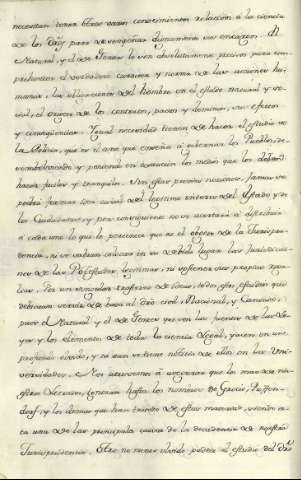 necesitan tener otros varios conocimientos relacion.s á la ciencia
de los Dros para desempeñar dignamente sus encargos. El
Natural, y el de Gentes le son absolutamente precisos para com-
prehender el verdadero caracter y norma de las acciones hu-
manas, las obligaciones del hombre en el estado natural y so-
cial, el origen de los contratos, pactos y dominios, sus efectos
y consequencias. Igual necesidad tienen de hacer el estudio de
la Politica, que es el arte que enseña á gobernar los Pueblos,
y poniendo en execucion los medios que los deben
hacer justos y tranquilos. Sin estas precisas nociones, jamas se
podrá formar idea del legitimo interes del Estado y de
los Ciudadanos, y por consiguiente no se acertará á distribuir
á cada uno lo que le pertenece que es el objeto de la Jurispru-
dencia, ni se sabrán colocar en su debido lugar las Jurisdiccio-
nes de las Potestades legitimas, ni sostener sus propios
Por un singular trastorno de ideas, todos estos estudios que
debieran servir de basa al Dro civil, Nacional, y Canonico,
pues el Natural y el de Gentes que son las fuentes de las Le-
yes y los elementos de toda la ciencia Legal, yacen en un
profundo olvido, y no aun se tiene noticia de ellos en las Uni-
versidades. Nos atrevemos á asegurar que los mas de nu-
estros Letrados, ignoran hasta los nombres de Grocio, Puffen-
dorf, y los demas que han tratado de estas materias, siendo es-
ta una de las principales causas de la decadencia de nuestra
Jurisprudencia. Otro no menor olvido padece el estudio del Dro